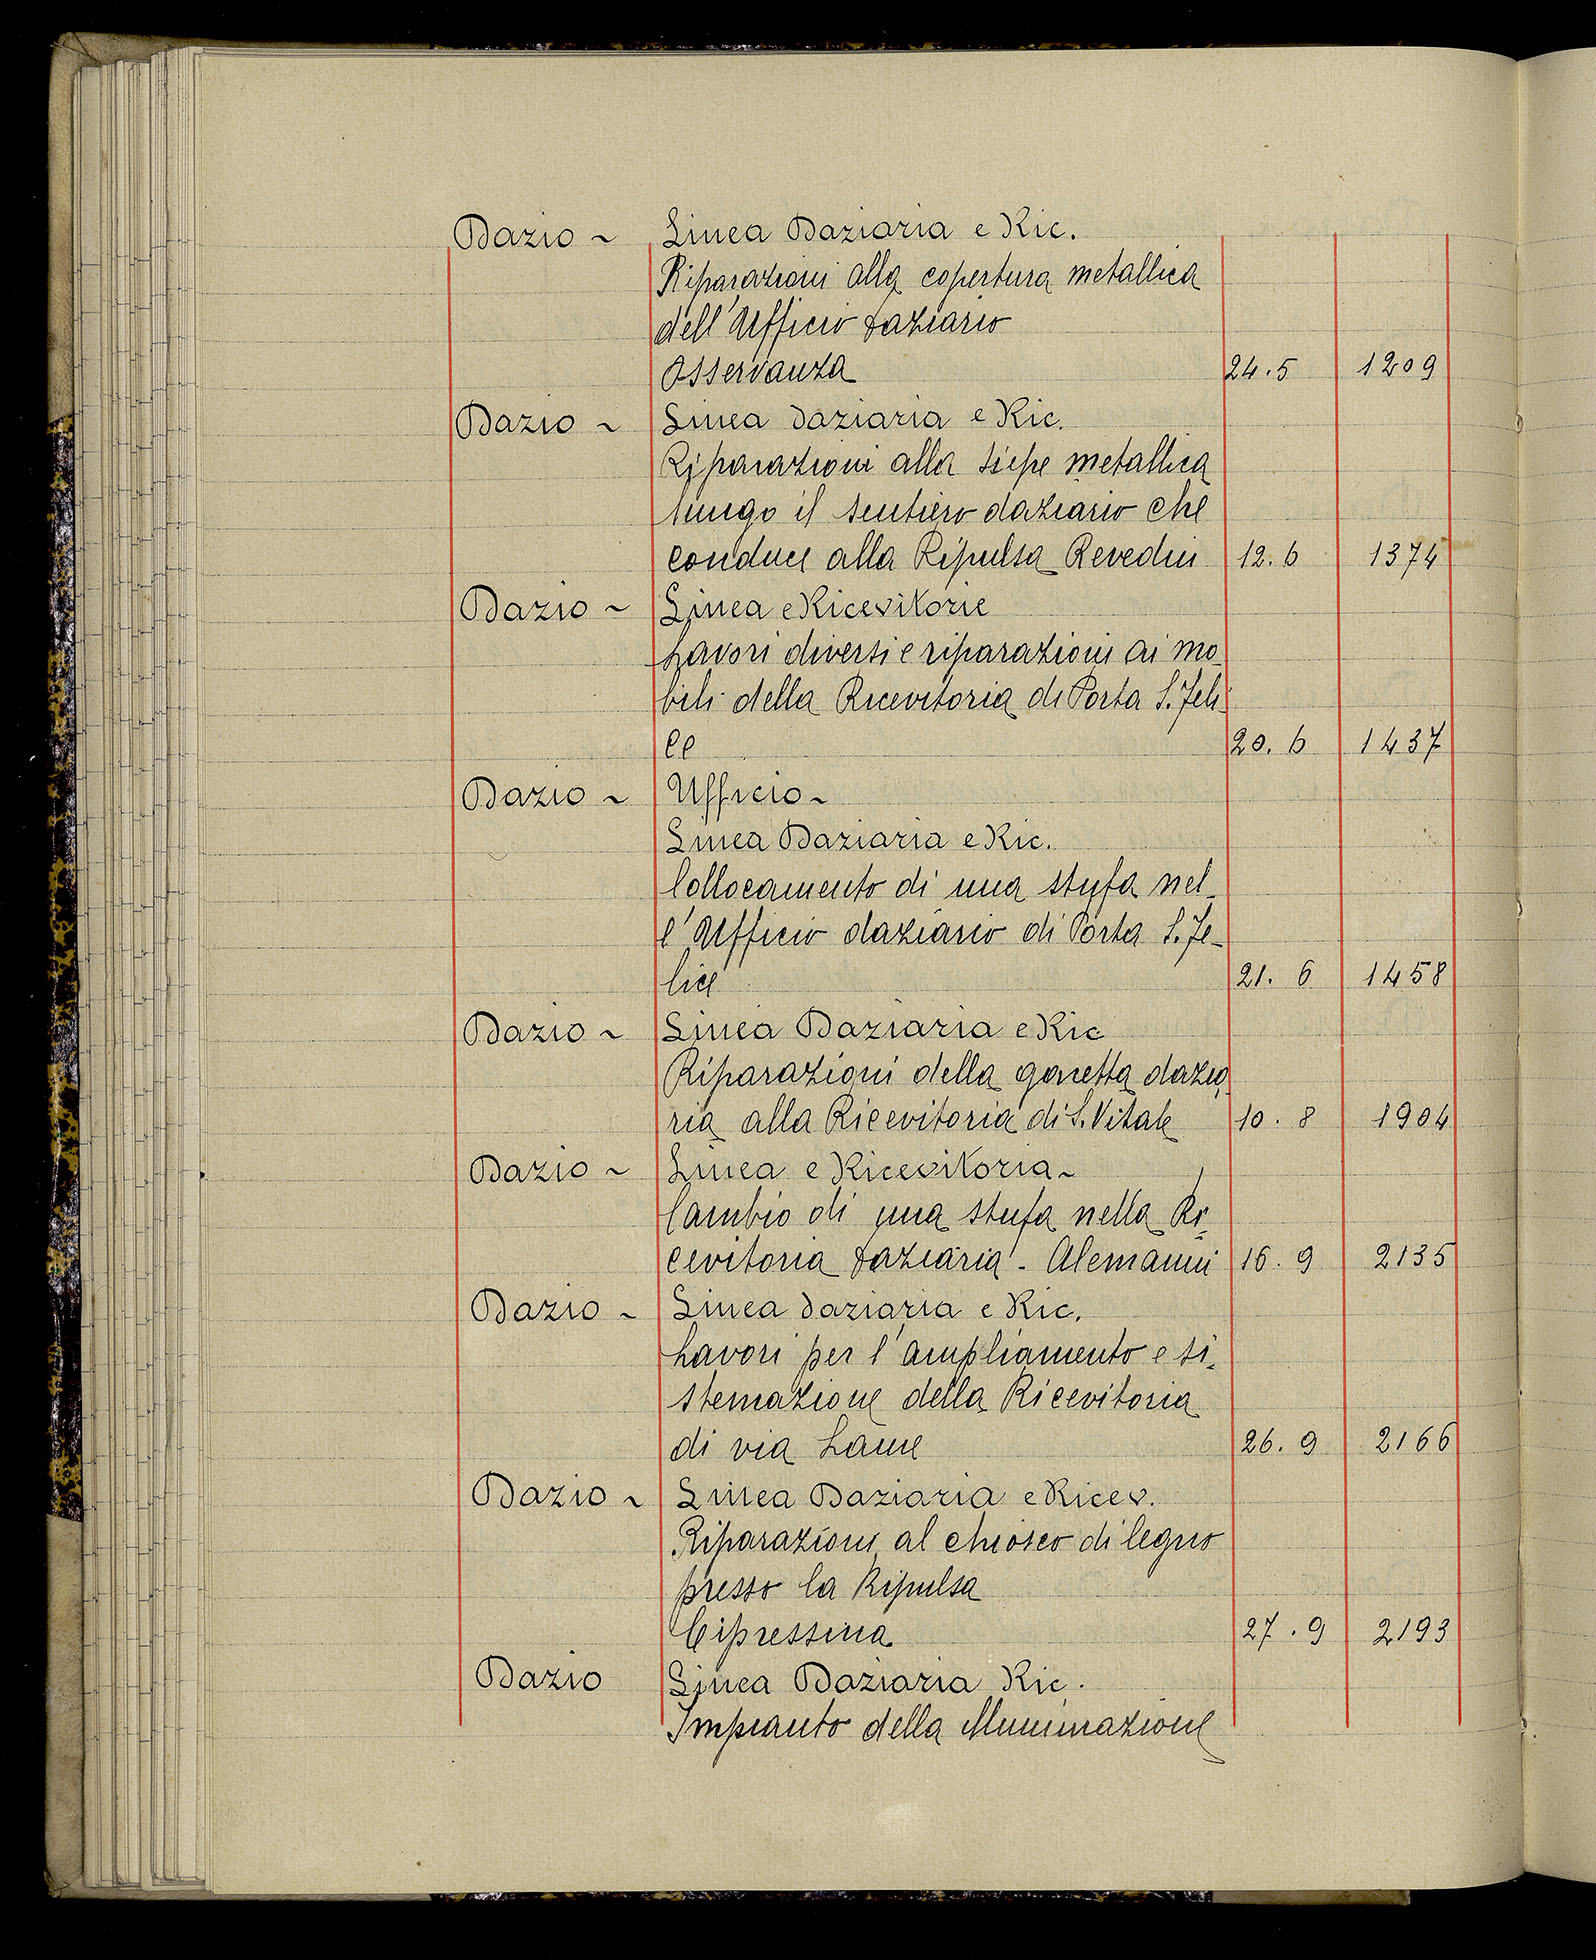 Dazio ~ Linea Daziaria e Ric.
Riparazioni alla copertura metallica
dell'Ufficio daziario
Osservanza 24.5 1209
Dazio ~ Linea daziaria e Ric.
Riparazioni alla siepe metallica
lungo il sentiero daziario che
conduce alla Ripulsa Revedin 12.6 1374
Dazio ~ Linea e Ricevitorie
Lavori diversi e riparazioni ai mo-
bili della Ricevitoria di Porta S. Feli-
ce 20.6 1437
Dazio ~ Ufficio ~
Linea Daziaria e Ric.
Collocamento di una stufa nel-
l'Ufficio daziario di Porta S. Fe-
lice 21.6 1458
Dazio ~ Linea Daziaria e Ric
Riparazioni della garretta dazia-
ria alla Ricevitoria di S. Vitale 10.8 1904
Dazio ~ Linea e Ricevitoria ~
Cambio di una stufa nella Ri-
cevitoria daziaria - Alemanni 16.9 2135
Dazio ~ Linea daziaria e Ric.
Lavori per l'ampliamento e si-
stemazione della Ricevitoria
di via Lame 26.9 2166
Dazio ~ Linea Daziaria e Ricev.
Riparazioni al chiosco di legno
presso la Ripulsa
Cipressina 27.9 2193
Dazio Linea Daziaria Ric.
Impianto della illuminazione